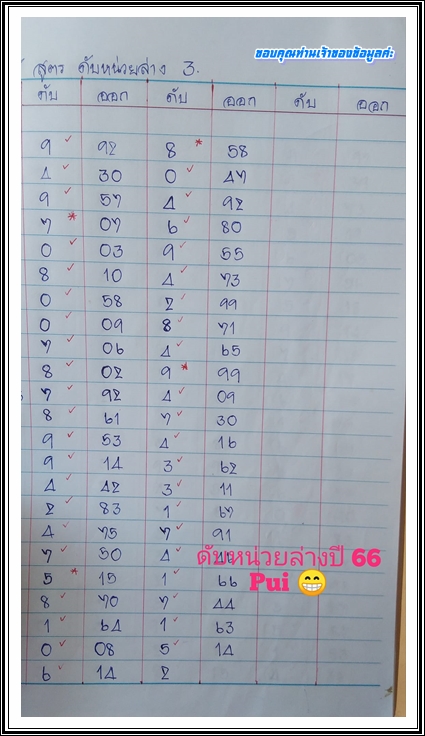 ขอบคุณท่านเจ้าของข้อมูลค่ะ
สูตร ดับหน่วยล่าง 3.
ดับ ออก ดับ ออก ดับ ออก
9 ✓ 92 8 * 58
4 ✓ 30 0 ✓ 47
9 ✓ 57 4 ✓ 92
7 * 07 6 ✓ 80
0 ✓ 03 9 ✓ 55
8 ✓ 10 4 ✓ 73
0 ✓ 58 2 ✓ 99
0 ✓ 09 8 ✓ 71
7 ✓ 06 4 ✓ 65
8 ✓ 02 9 * 99
7 ✓ 92 4 ✓ 09
8 ✓ 61 7 ✓ 30
9 ✓ 53 4 ✓ 16
9 ✓ 14 3 ✓ 62
4 ✓ 42 3 ✓ 11
2 ✓ 83 1 ✓ 67
4 ✓ 75 7 ✓ 91
7 ✓ 50 4 ✓
ดับหน่วยล่างปี 66
5 * 15 1 ✓ 66
Pui 😁
8 ✓ 70 7 ✓ 44
1 ✓ 64 1 ✓ 63
0 ✓ 08 5 ✓ 14
6 ✓ 14 2